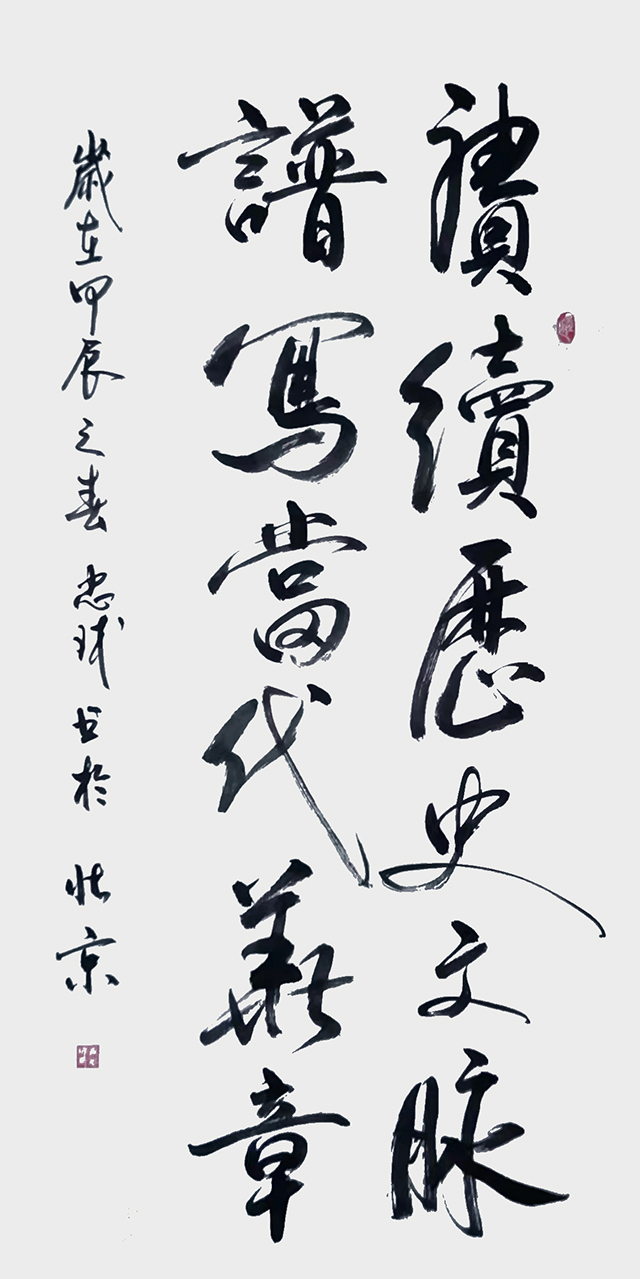 賡續歷史文脉
譜寫當代華章
歲在甲辰之春 忠 書於 北京